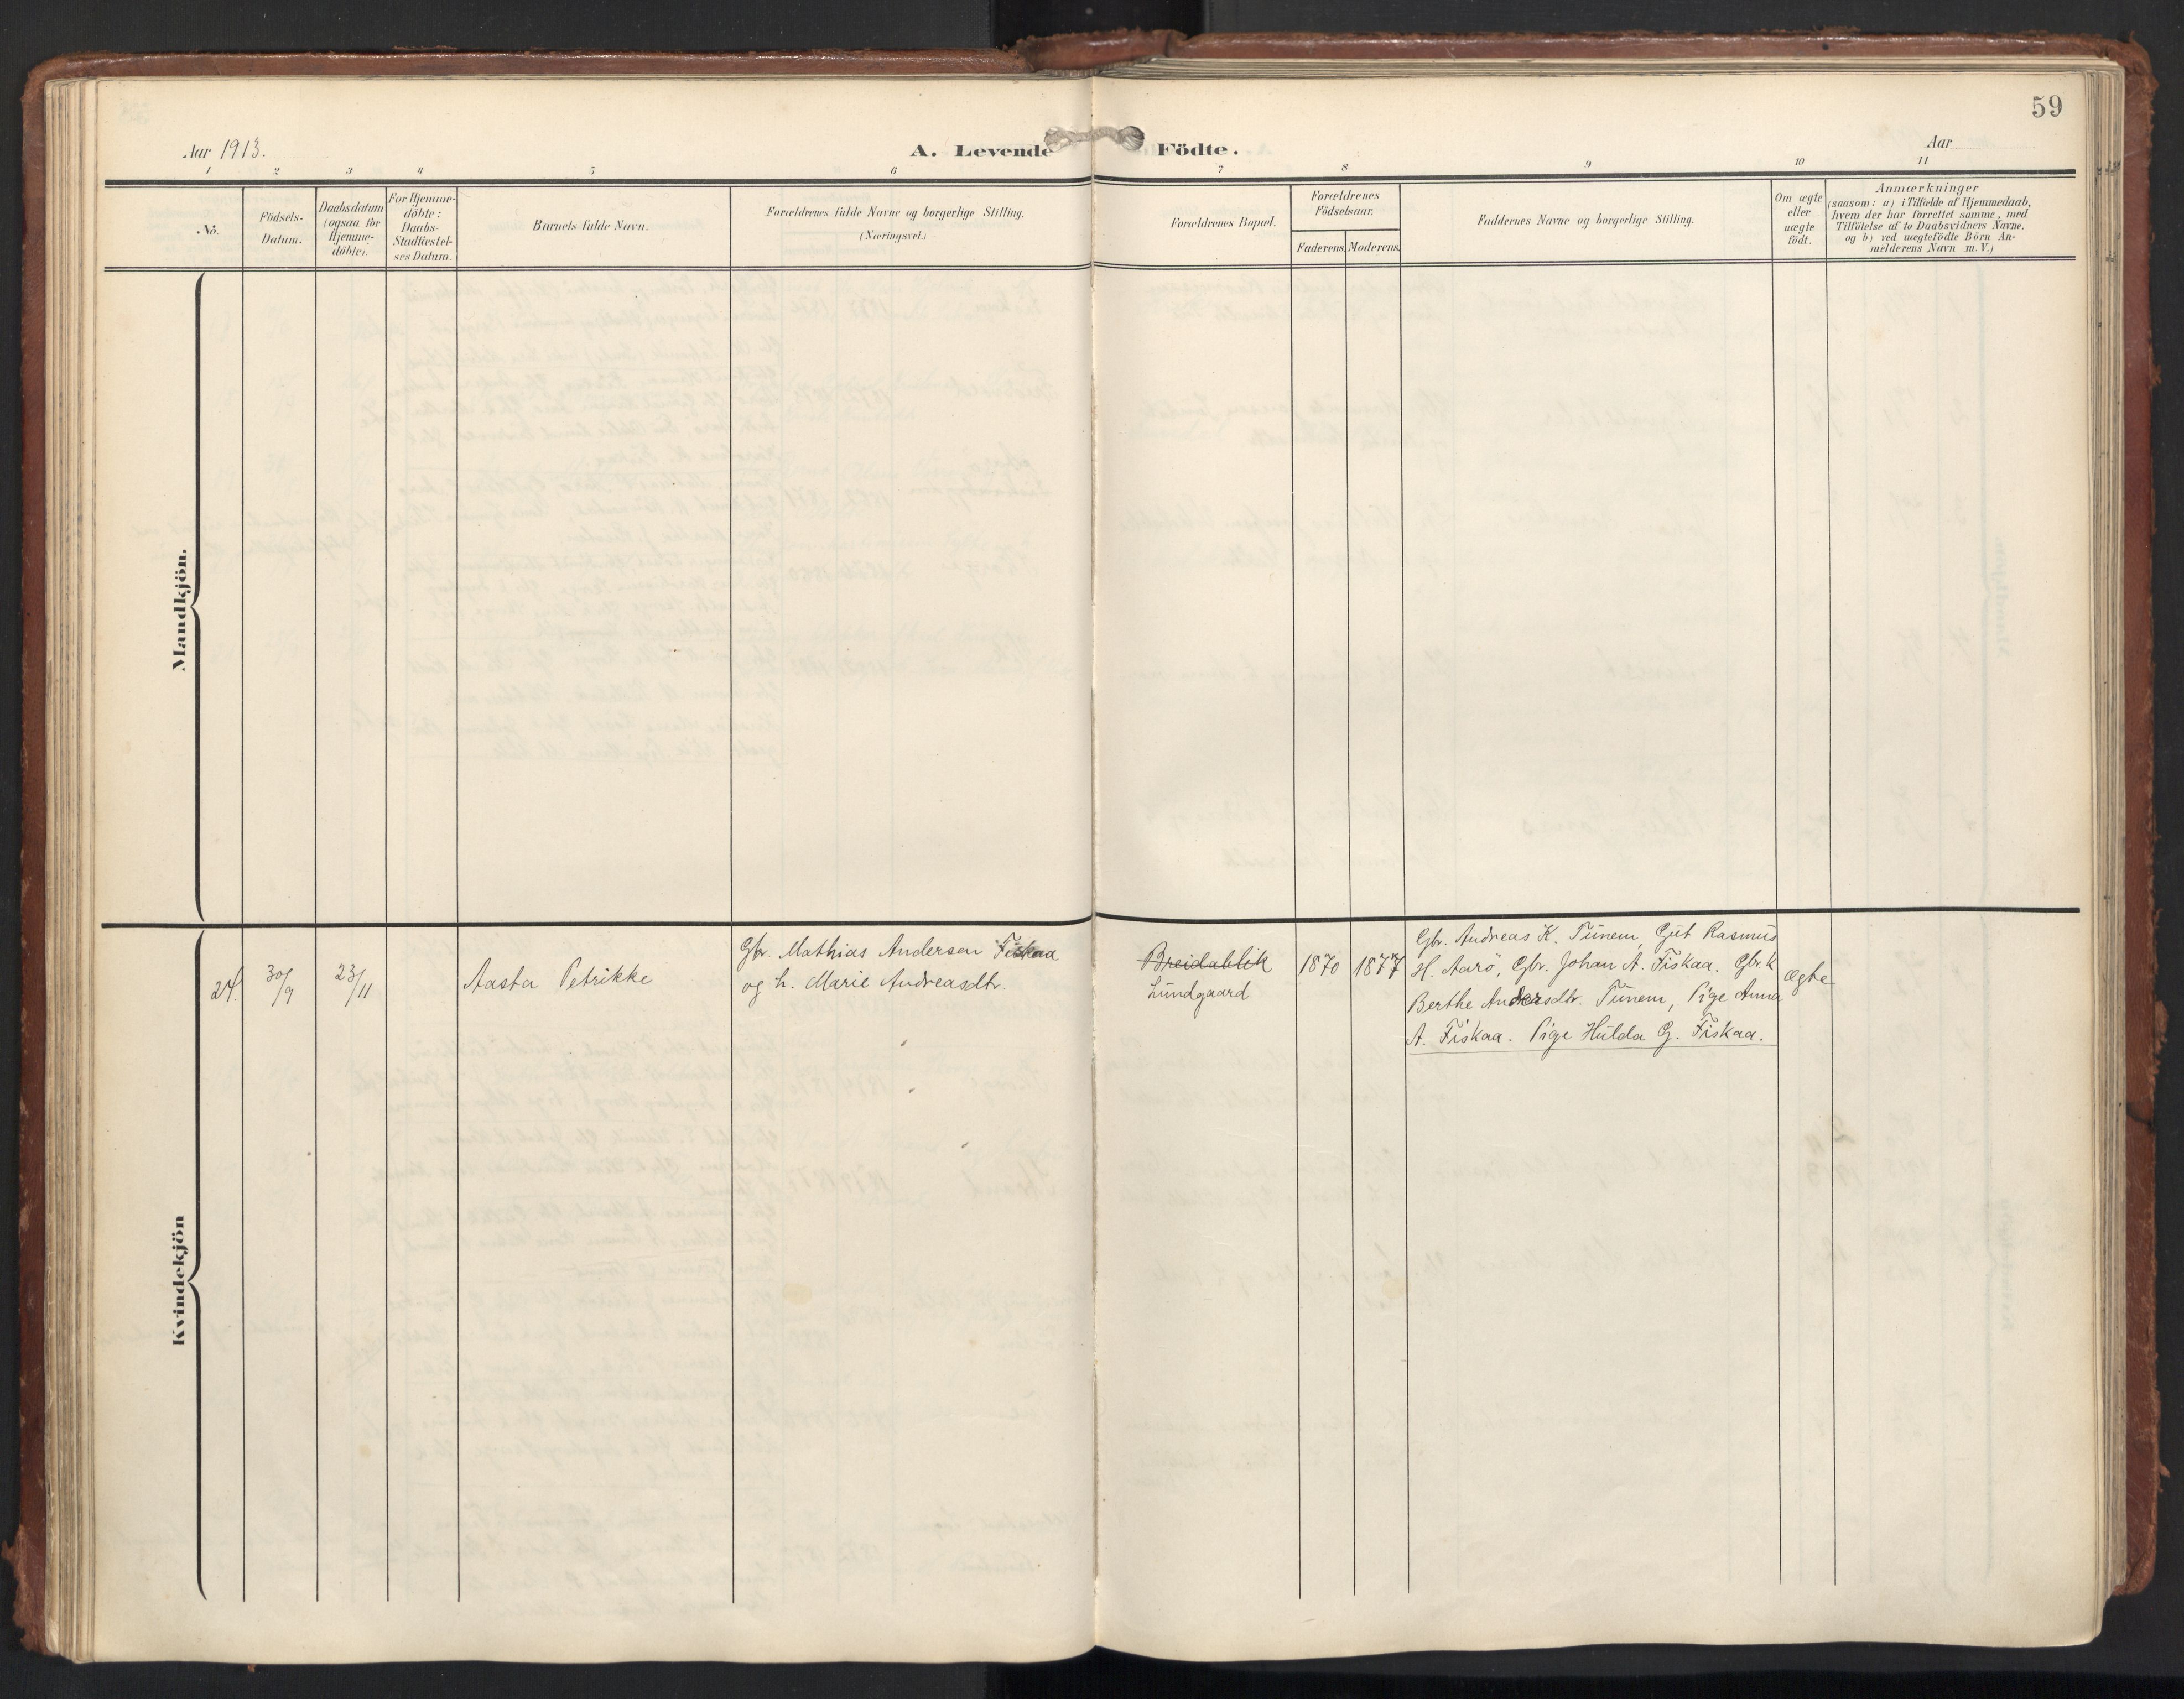 59
Aar 1913.
A. Levende Födte.
Aar
1 2 3 4 5 6 7 8 9 10 11
No.
Födsels-
Datum.
Daabsdatum
(ogsaa for
Hjemme-
döbte).
For Hjemme-
döbte:
Daabs-
Stadfæstel-
ses Datum.
Barnets fulde Navn.
Forældrenes fulde Navne og borgerlige Stilling.
(Næringsvei.)
Forældrenes Bopæl.
Forældrenes
Födselsaar.
Faderens. Moderens.
Faddernes Navne og borgerlige Stilling.
Om ægte
eller
uægte
födt.
Anmærkninger
(saasom: a) i Tilfælde af Hjemmedaab,
hvem der har forrettet samme, med
Tilföielse af to Daabsvidners Navne.
og b) ved uægtefödte Börn An-
melderens Navn m.V.)
Mandkjön.
Kvindekjön
24.
30/9
23/11
Aasta Petrikke
Gbr. Mathias Andersen Fiskaa
og h. Marie Andreasdtr.
Breidablik
Lundgaard
1870
1877
Gbr. Andreas K. Tunem, Gut Rasmus
H. Aarö, Gbr. Johan A. Fiskaa. Gbr.k
Berthe Andersdtr. Tunem, Pige Anna
A. Fiskaa. Pige Hulda G. Fiskaa.
ægte